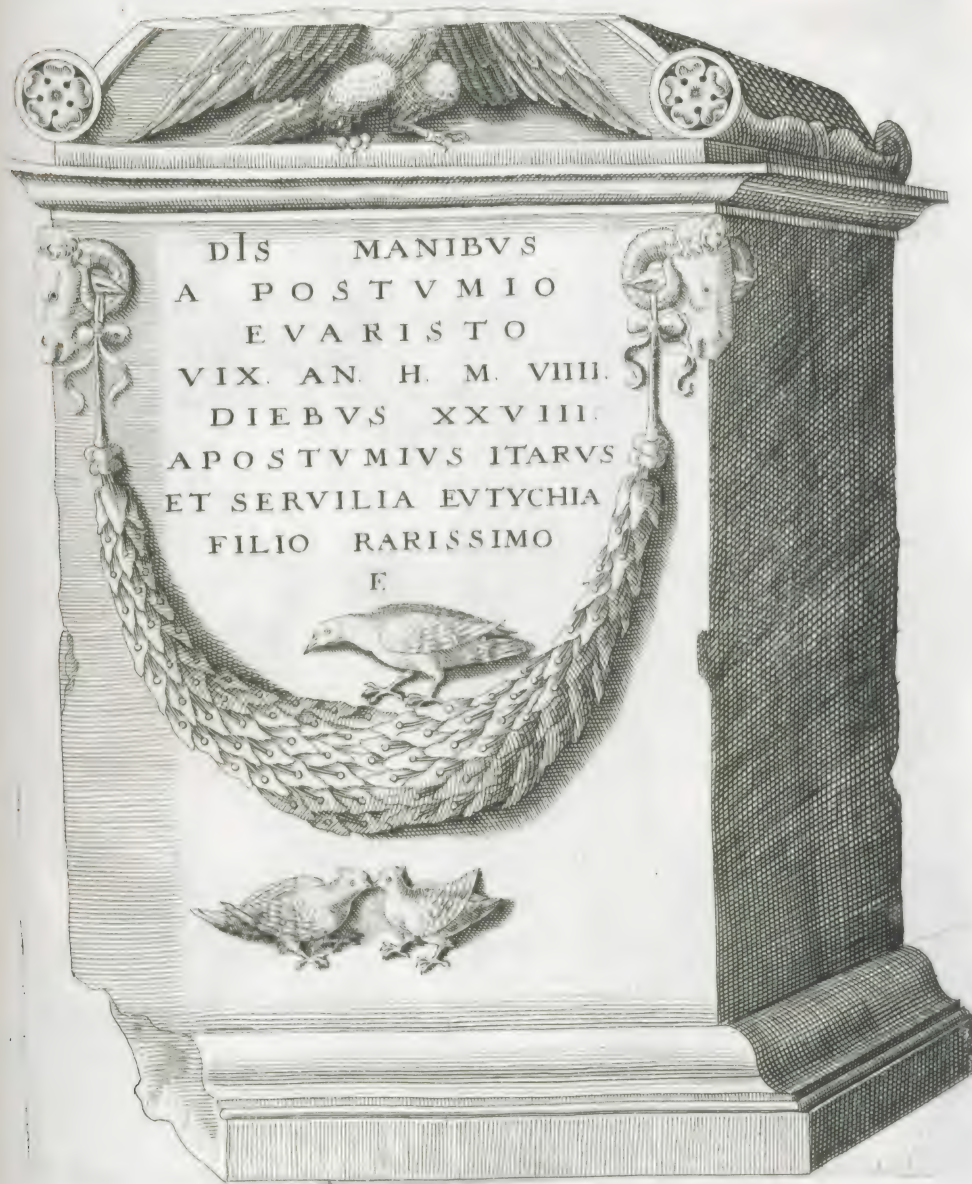 DIS MANIBVS
A POSTVMIO
EVARISTO
VIX. AN. H. M. VIIII.
DIEBVS XXVIII.
APOSTVMIVS ITARVS
ET SERVILIA EVTYCHIA
FILIO RARISSIMO
E